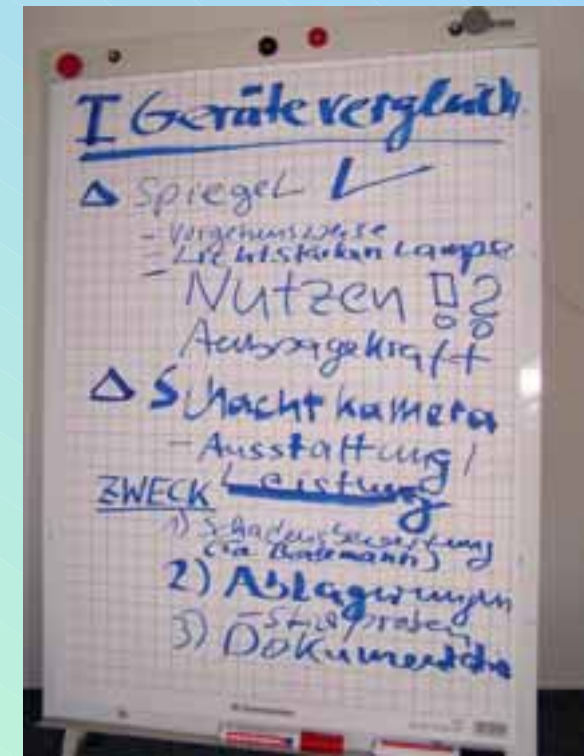 I Gerätevergleich
△ Spiegel ✓
- Vorgehensweise
- Lichtstärken Lampe
- Nutzen !?
Aussagekraft
△ Schachtkamera
- Ausstattung /
ZWECK Leistung
1) Schadensbewertung
2) Ablagerungen
3) Dokumentation